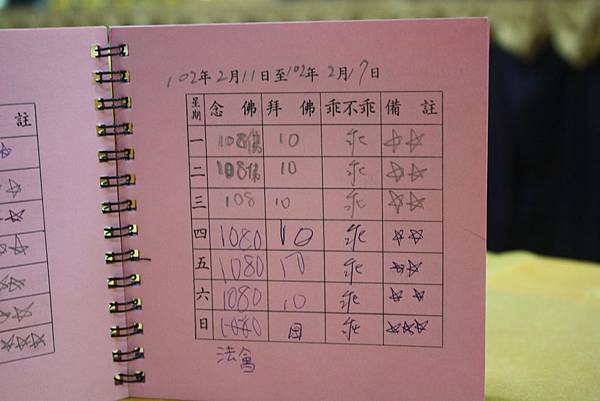 102年2月11日至102年2月17日
星期 念佛 拜佛 乖不乖 備註
一 108佛 10 乖 ☆☆
二 108佛 10 乖 ☆☆
三 108 10 乖 ☆☆
四 1080 10 乖 ☆☆
五 1080 10 乖 ☆☆
六 1080 10 乖 ☆☆
日 1080 乖 ☆☆☆
法會
註